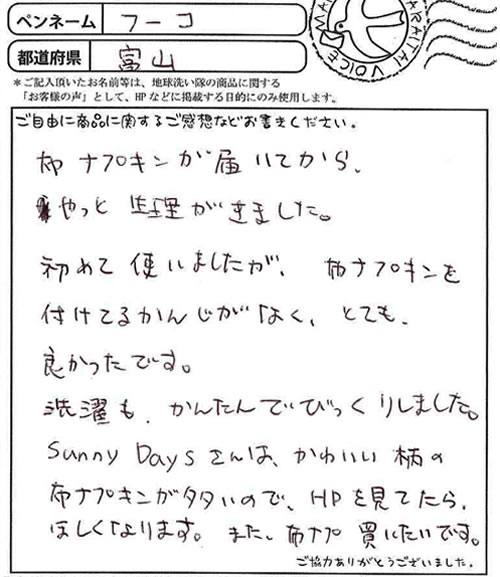 ペンネーム フーコ
都道府県 富山
＊ご記入頂いたお名前等は、地球洗い隊の商品に関する
「お客様の声」として、HPなどに掲載する目的にのみ使用します。
ARAITAI VOICE
ご自由に商品に関するご感想などお書きください。
布ナプキンが届いてから、
やっと生理がきました。
初めて使いましたが、布ナプキンを
付けてるかんじがなく、とても、
良かったです。
洗濯も、かんたんでびっくりしました。
Sunny Daysさんは、かわいい柄の
布ナプキンが多いので、HPを見てたら、
ほしくなります。また、布ナプ買いたいです。
ご協力ありがとうございました。